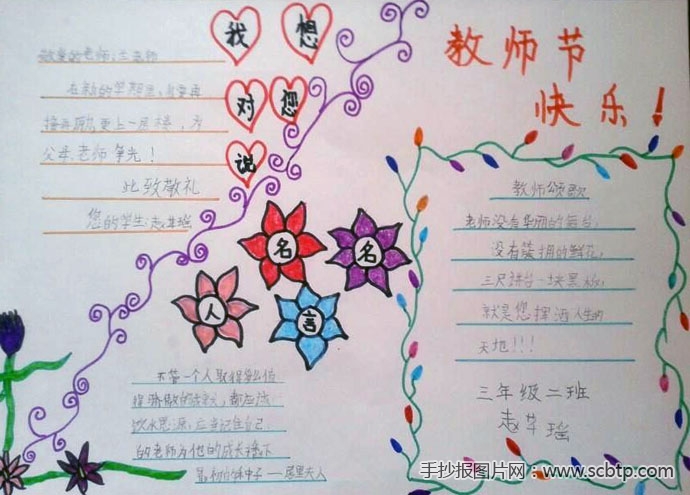 我想
对您
说
教师节
快乐！
敬爱的老师:
在新的学期里,我要再
接再励,更上一层楼，为
父母、老师争光！
此致敬礼
您的学生:
名名
人言
不管一个人取得多么值
得骄傲的成就，都应该
饮水思源,应当记住自己
的老师为他的成长播下
最初的种子——居里夫人
教师颂歌
老师没有华丽的舞台,
没有簇拥的鲜花,
三尺讲台一块黑板,
就是您挥洒人生的
天地!!!
三年级二班
手抄报图片网：www.scbtp.com